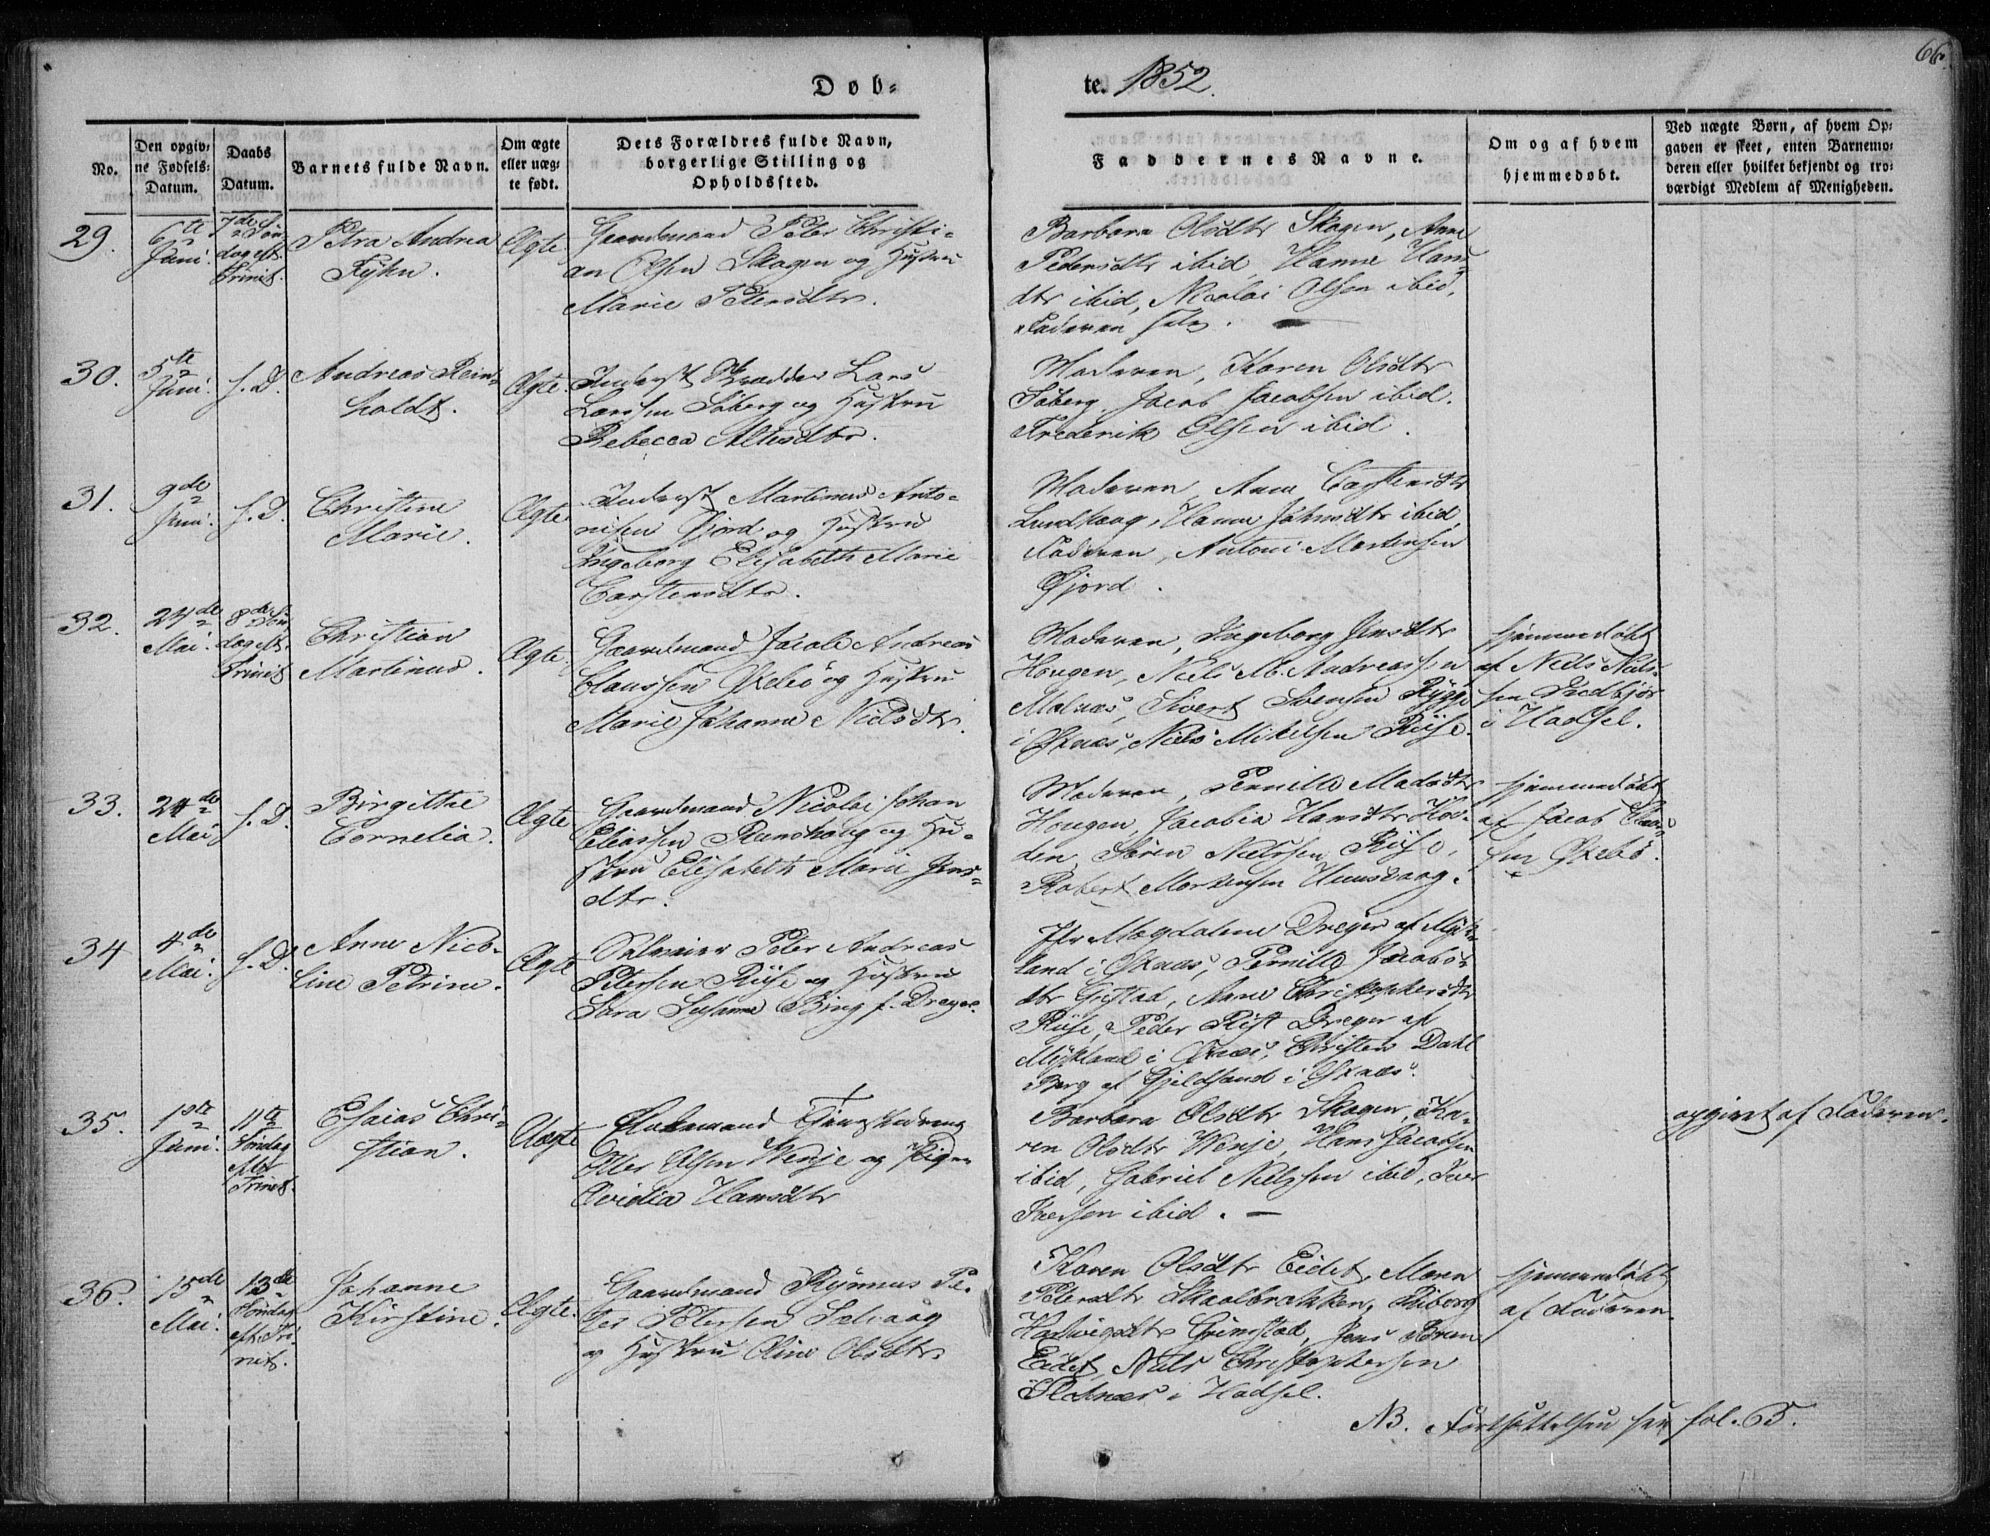 66.
Døb-
te. 1852.
No.
Den opgiv-
ne Fødsels-
Datum.
Daabs
Datum.
Barnets fulde Navn.
Om ægte
eller uæg-
te født.
Dets Forældres fulde Navn,
borgerlige Stilling og
Opholdssted.
Faddernes Navne.
Om og af hvem
hjemmedøbt.
Ved uægte Børn, af hvem Op-
gaven er skeet, enten Barnemo-
deren eller hvilket bekjendt og tro-
værdigt Medlem af Menigheden.
29.
6te
Juni.
7de Søn
dag eft.
Trinit.
Petra Andrea
Ægte
Gaardmand Peter Christi-
an Olsen Skagen og Hustru
Marie Petersdtr.
Barbara Olsdtr Skagen, Anne
Pedersdtr ibid, Hanne Hans
dtr ibid, Nicolai Olsen ibid,
Faderen selv.
30.
5te
Juni.
s. D.
Andreas Rein-
holdt.
Ægte.
Inderst Lars
Larssen Søberg og Hustru
Rebecca
Moderen, Karen Olsdtr
Søberg, Jacob Jacobsen ibid.
Frederik Olsen ibid.
31.
9de
Juni.
s. D.
Christine
Marie.
Ægte.
Inderst Martinus Anto-
nisen Fjord og Hustru
Ingeborg Elisabeth Marie
Carstensdtr.
Moderen, Anne Carstensdtr
Hanne Johnsdtr ibid,
Faderen, Antoni Mortensen
Fjord.
32.
24de
Mai.
8de Søn
dag eft.
Trinit
Christian
Martinus.
Ægte.
Gaardmand Jacob Andreas
Claussen Øxebø og Hustru
Marie Johanne Nielsdtr.
Moderen, Ingeborg Jensdtr
Hougen, Niels M. Andreassen
Malnæs, Sivert Svensen Rygge
i Øxnæs, Niels Mikelsen Riise.
hjemmedøbt
af Niels Niels-
sen
i Hadsel.
33.
24de
Mai
s. D.
Birgithe
Cornelia.
Ægte
Gaardmand Nicolai Johan
Eliassen Ramshaug og Hu-
stru Elisabeth Marie Jens-
dtr.
Moderen, Pernille Madsdtr
Hougen, Jacobia Hansdtr Ho-
den, Søren Nielssen Riise,
Robert Mortensen
hjemmedøbt
af Jacob Claus-
sen Øxebø.
34
4de
Mai.
s. D.
Anne Nico-
line Petrine.
Ægte
Selveier Peter Andreas
Petersen Riise og Hustru
Sara Susanne Bing f. Dreyer.
Jfr Magdalene Dreyer af Myk-
land i Øxnæs, Pernille Jacobs-
dtr Gistad, Anne Christophersdtr
Riise, Peder Rist Dreyer af
Mykland i Øxnæs, Christen Dahl
Berg af Gjeldsand i Øxnæs.
35.
1ste
Juni.
11te
Søndag
eft.
Trinit.
Esaias Chri-
stian.
Uægte
Enkemand
Oller Olsen Wenje og Pigen
Ovidia Hansdtr
Barbara Olsdtr Skagen, Ka-
ren Olsdtr Wenje, Hans Jacobsen
ibid, Gabriel Nielssen ibid, Iver
Iversen ibid.
opgivet af Faderen.
36.
15de
Mai.
13de
Søndag
eft. Tri-
nit.
Johanne
Kirstine.
Ægte.
Gaardmand Rynnus Pe-
ter Petersen Selvaag
og Hustru Oline Olsdtr.
Karen Olsdtr Eidet, Maren
Petersdtr Skaalbrækken, Riborg
Hartvigsdtr Grimstad, Jens
Eidet, Niels Christophersen
i Hadsel.
hjemmedøbt
af Faderen.
NB. Fortsættelsen see fol. 65.